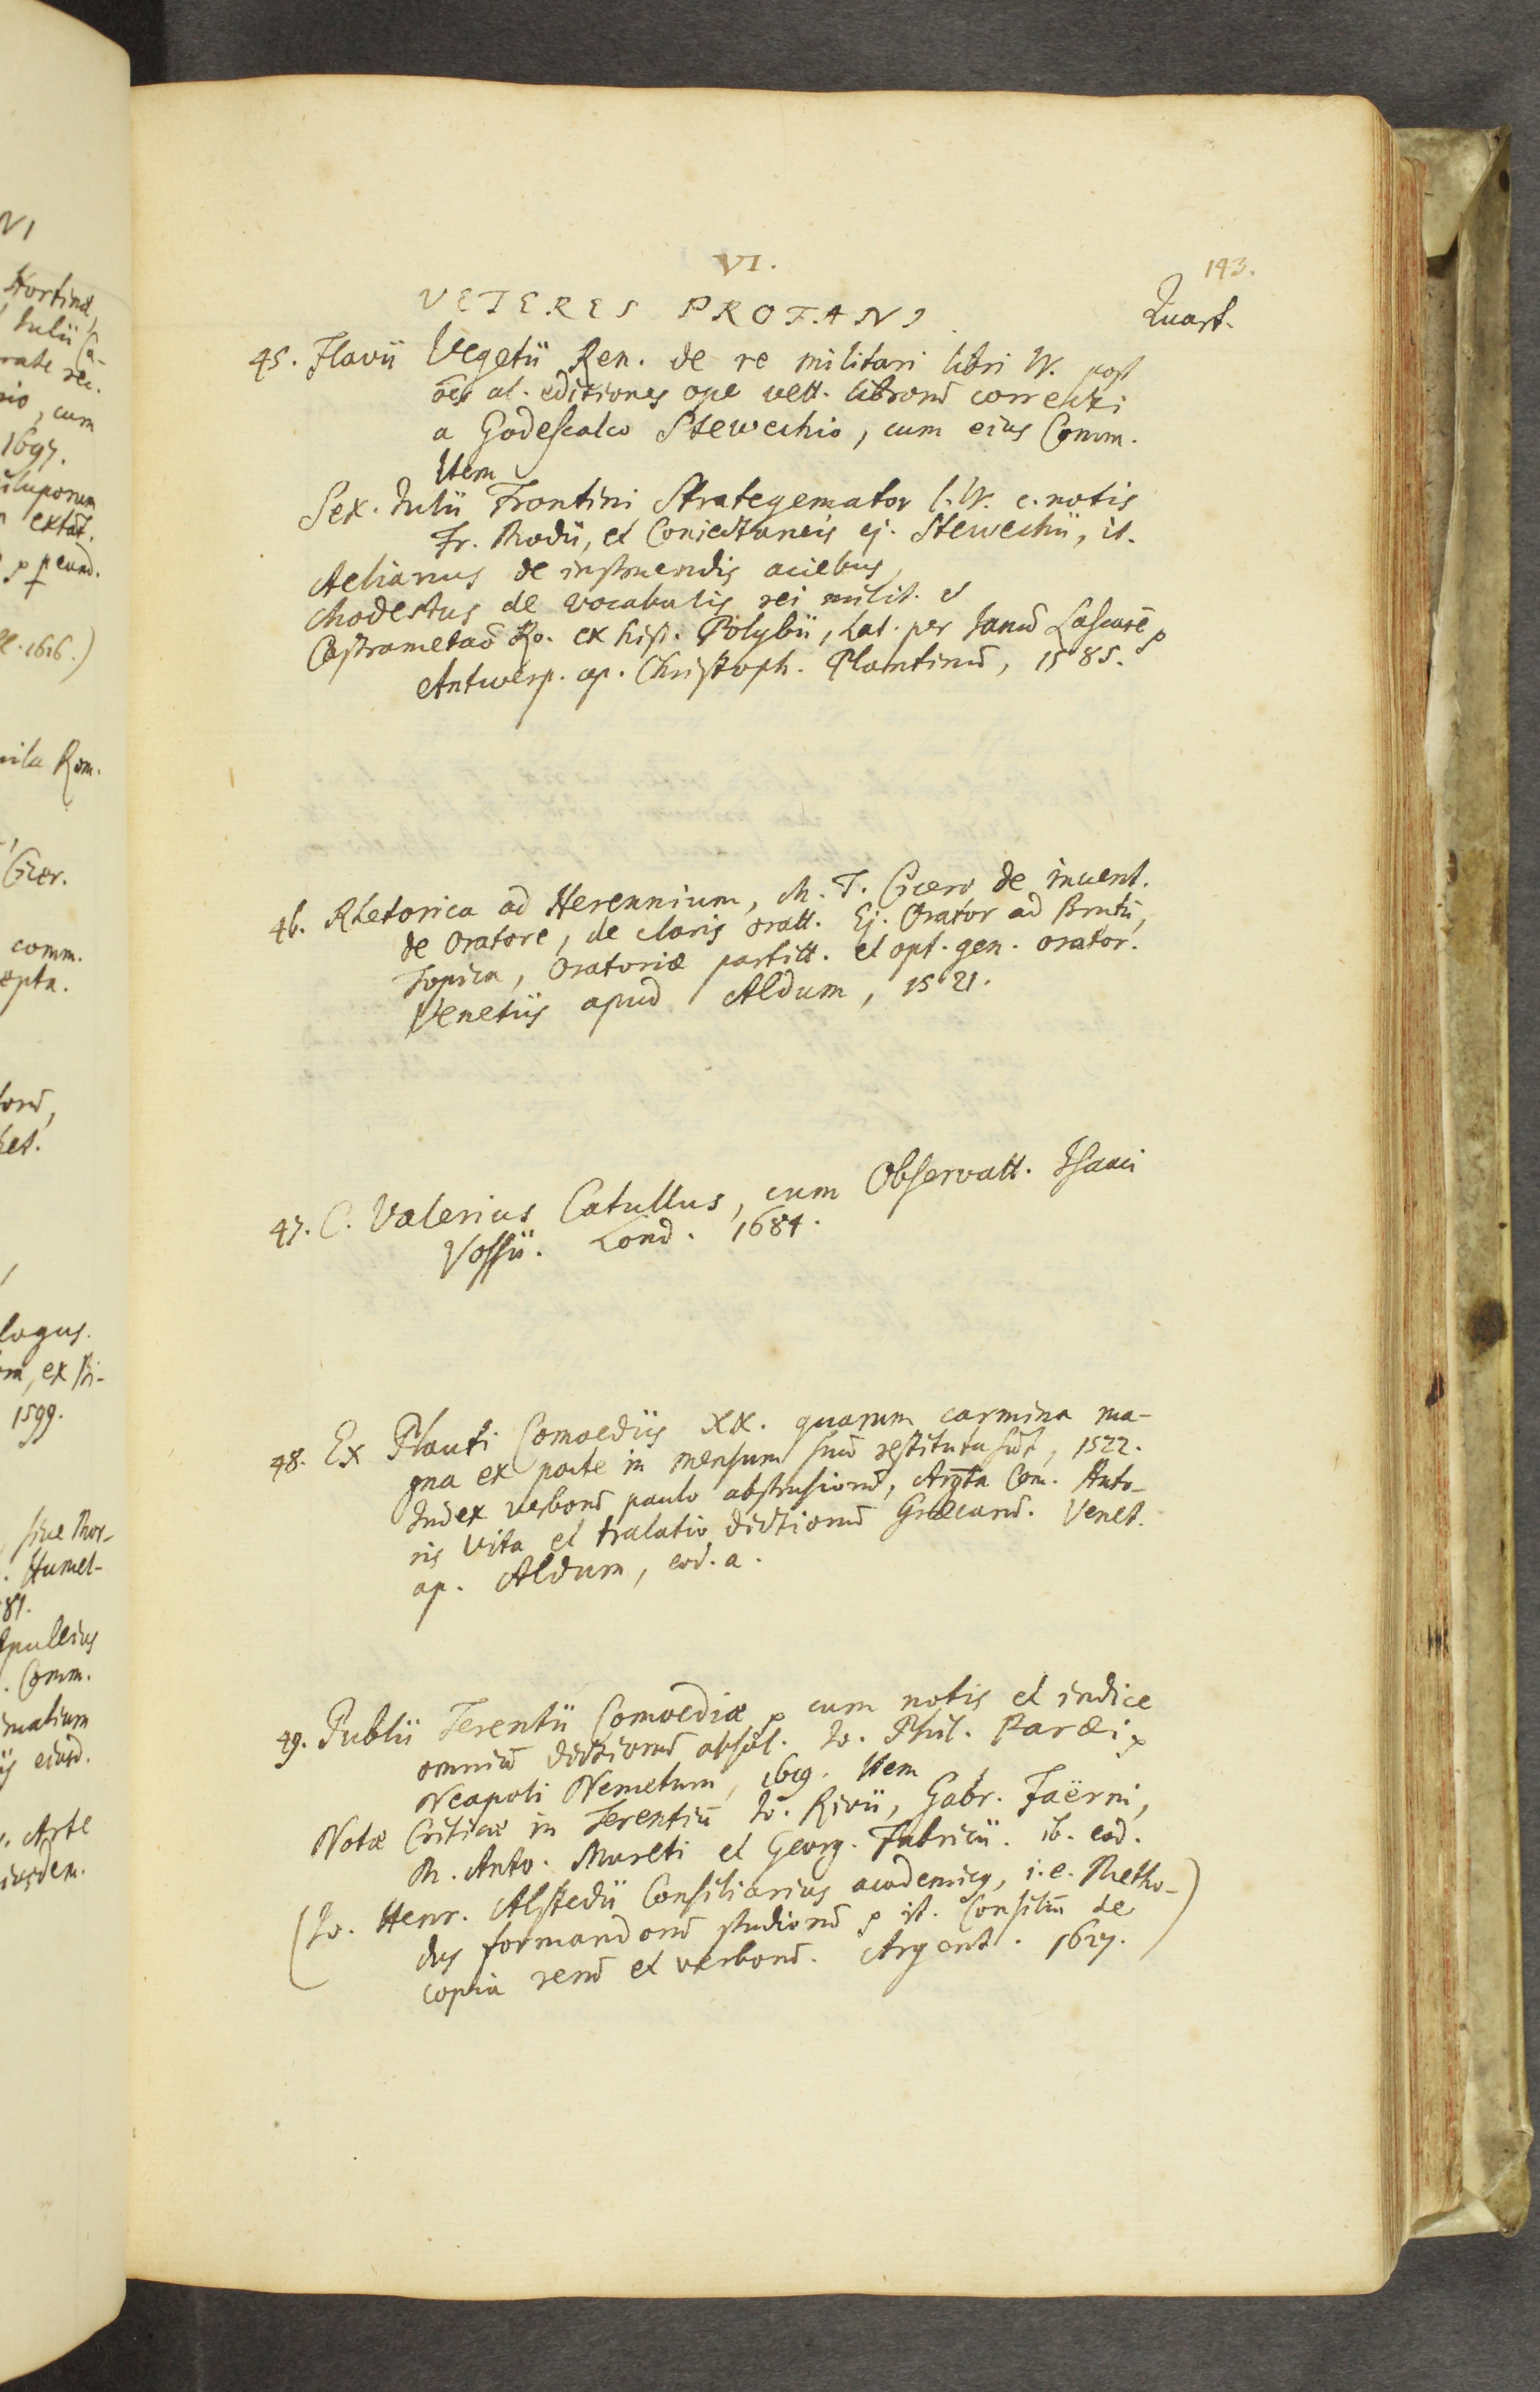 VI.
143.
VETERES PROFANI.
Quart.
45. Flavii Vegetii Ren. de re militari libri IV. post
oēs al. editiones ope vett. librorū correcti
a Godescalco Stewechio, cum eius Comm.
Item
Sex. Julii Frontini Strategemator l. IV. c. notis
Fr. Modii, et Coniectaneis ej. Stewechii, it.
Aelianus de instruendis aciebus,
Modestus de vocabulis rei milit. et
Castrametaō Ro. ex hist. Polybii, Lat. per Janū Lascarē
Antwerp. ap. Christoph. Plantinū, 1585.
46. Rhetorica ad Herennium, M. T. Cicero de invent.
de Oratore, de claris oratt. Ej. Orator ad Brutū,
Topica, Oratoriæ partitt. et opt. gen. orator.
Venetiis apud Aldum, 1521.
47. C. Valerius Catullus, cum Observatt. Isaaci
Vossii. Lond. 1684.
48. Ex Plauti Comoediis XX. quarum carmina ma-
gna ex parte in mensum suū restituta sūt, 1522.
Index verborū paulo abstrusiorū, Argta Com. Auto-
ris Vita et tralatio dictionū Græcarū. Venet.
ap. Aldum, eod. a.
49. Publii Terentii Comoediæ cum notis et indice
omniū dictionū absol. Jo. Phil. Paræi
Neapoli Nemetum, 1619. Item
Notæ Criticæ in Terentiū Jo. Rivii, Gabr. Faërni,
M. Anto. Mureti et Georg. Fabricii. ib. eod.
(Jo. Henr. Alstedii Consiliarius academicus, i.e. Metho-
dus formandorū studiorū it. Consiliū de
copia rerū et verborū. Argent. 1627.)
NI
Julii Cæ-
cum
1697.
extāt.
eund.
1616.)
Rom.
Cicer.
comm.
1599.
Comm.
ejusd.
Arte